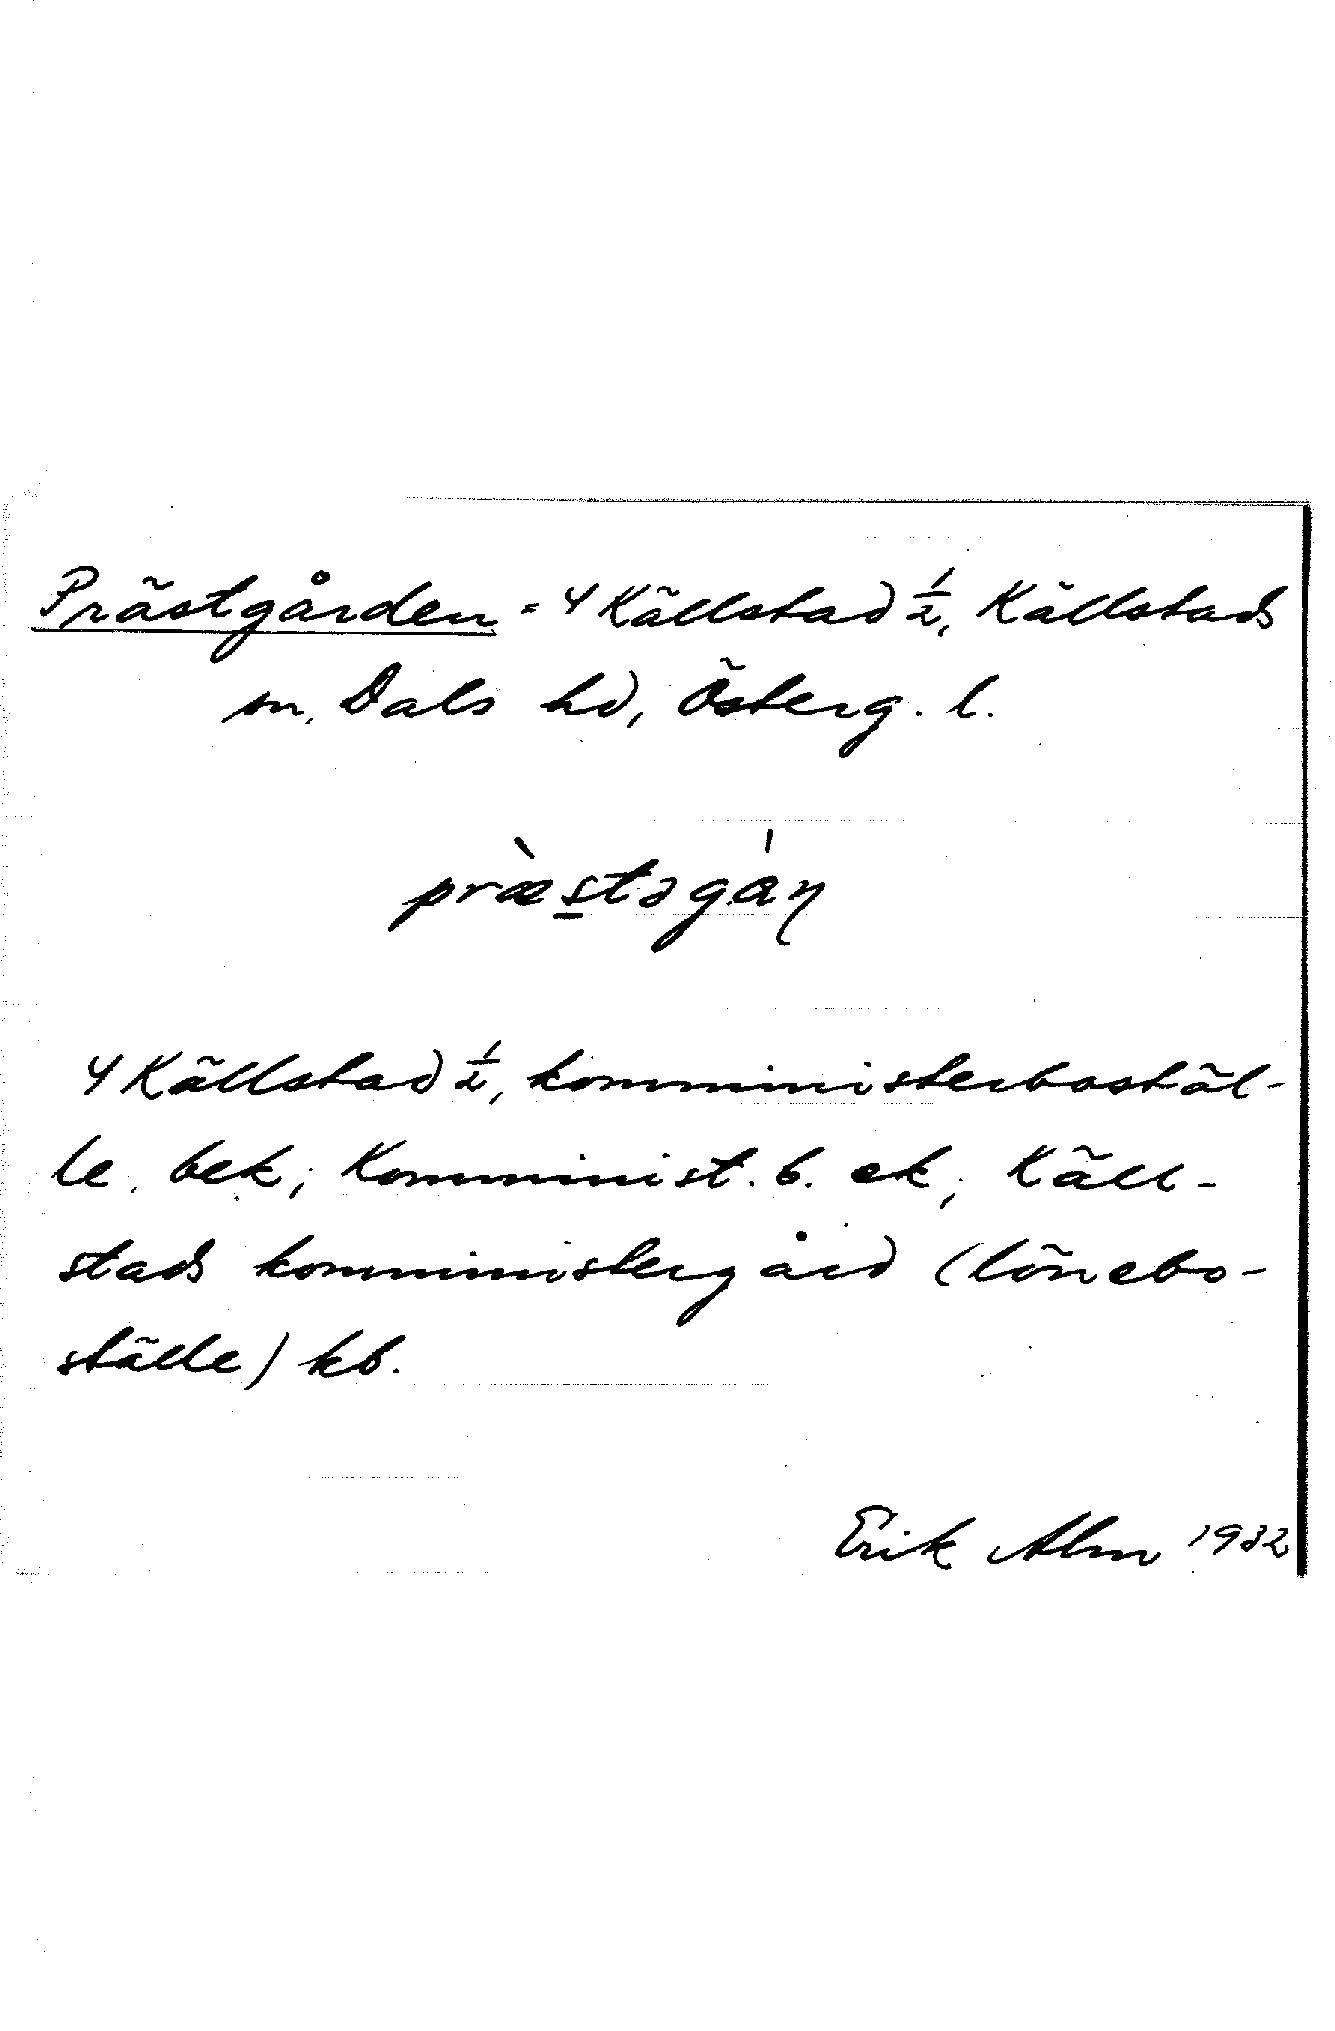 Prästgården = 4 Källstad ½, Källstads
sn, Dals hd, Österg. l.
præ̀stəgån
4 Källstad ½, komministerbostäl-
le. bek; Komminist. b. ek; Käll-
stads komministergård (lönebo-
ställe) kb.
Erik Alm 1932